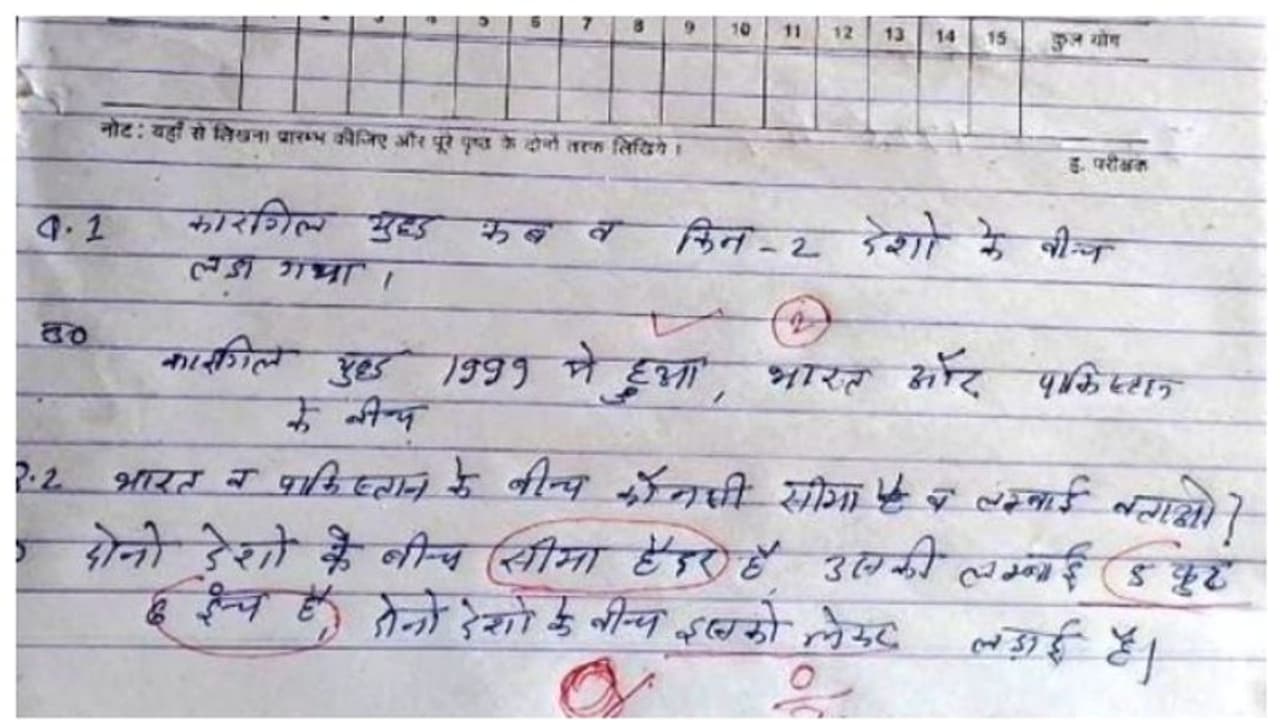 2 3 4 5 6 7 8 9 10 11 12 13 14 15 कुल योग
नोट: यहाँ से लिखना प्रारम्भ कीजिए और पूरे पृष्ठ के दोनों तरफ लिखिये।
ह. परीक्षक
Q.1 कारगिल युद्ध कब व किन-2 देशो के बीच
लड़ा गया।
2
उ०
कारगिल युद्ध 1999 मे हुआ, भारत और पाकिस्तान
के बीच
.2 भारत व पाकिस्तान के बीच कौनसी सीमा है व लम्बाई बताओ?
दोनो देशो के बीच सीमा हैदर है उसकी लम्बाई 5 फुट
6 ईन्च है, दोनो देशो के बीच इसको लेकर लड़ाई है।
0